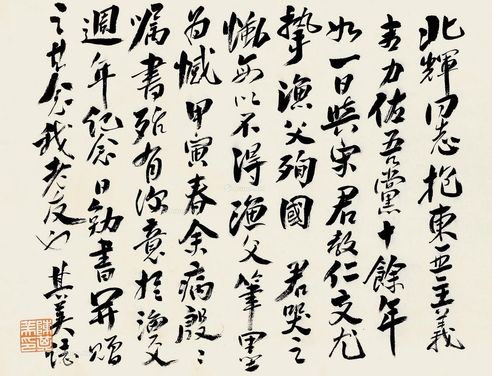 北輝同志抱東亞主義
青力佐吾黨十餘年
如一日與宋君教仁文尤
摯漁父殉國 君哭之
慟每以不得漁父筆墨
為憾甲寅春余病殷〻
囑書殆有深意於漁父
週年紀念日勉書并贈
之其念我老友也 其美誌